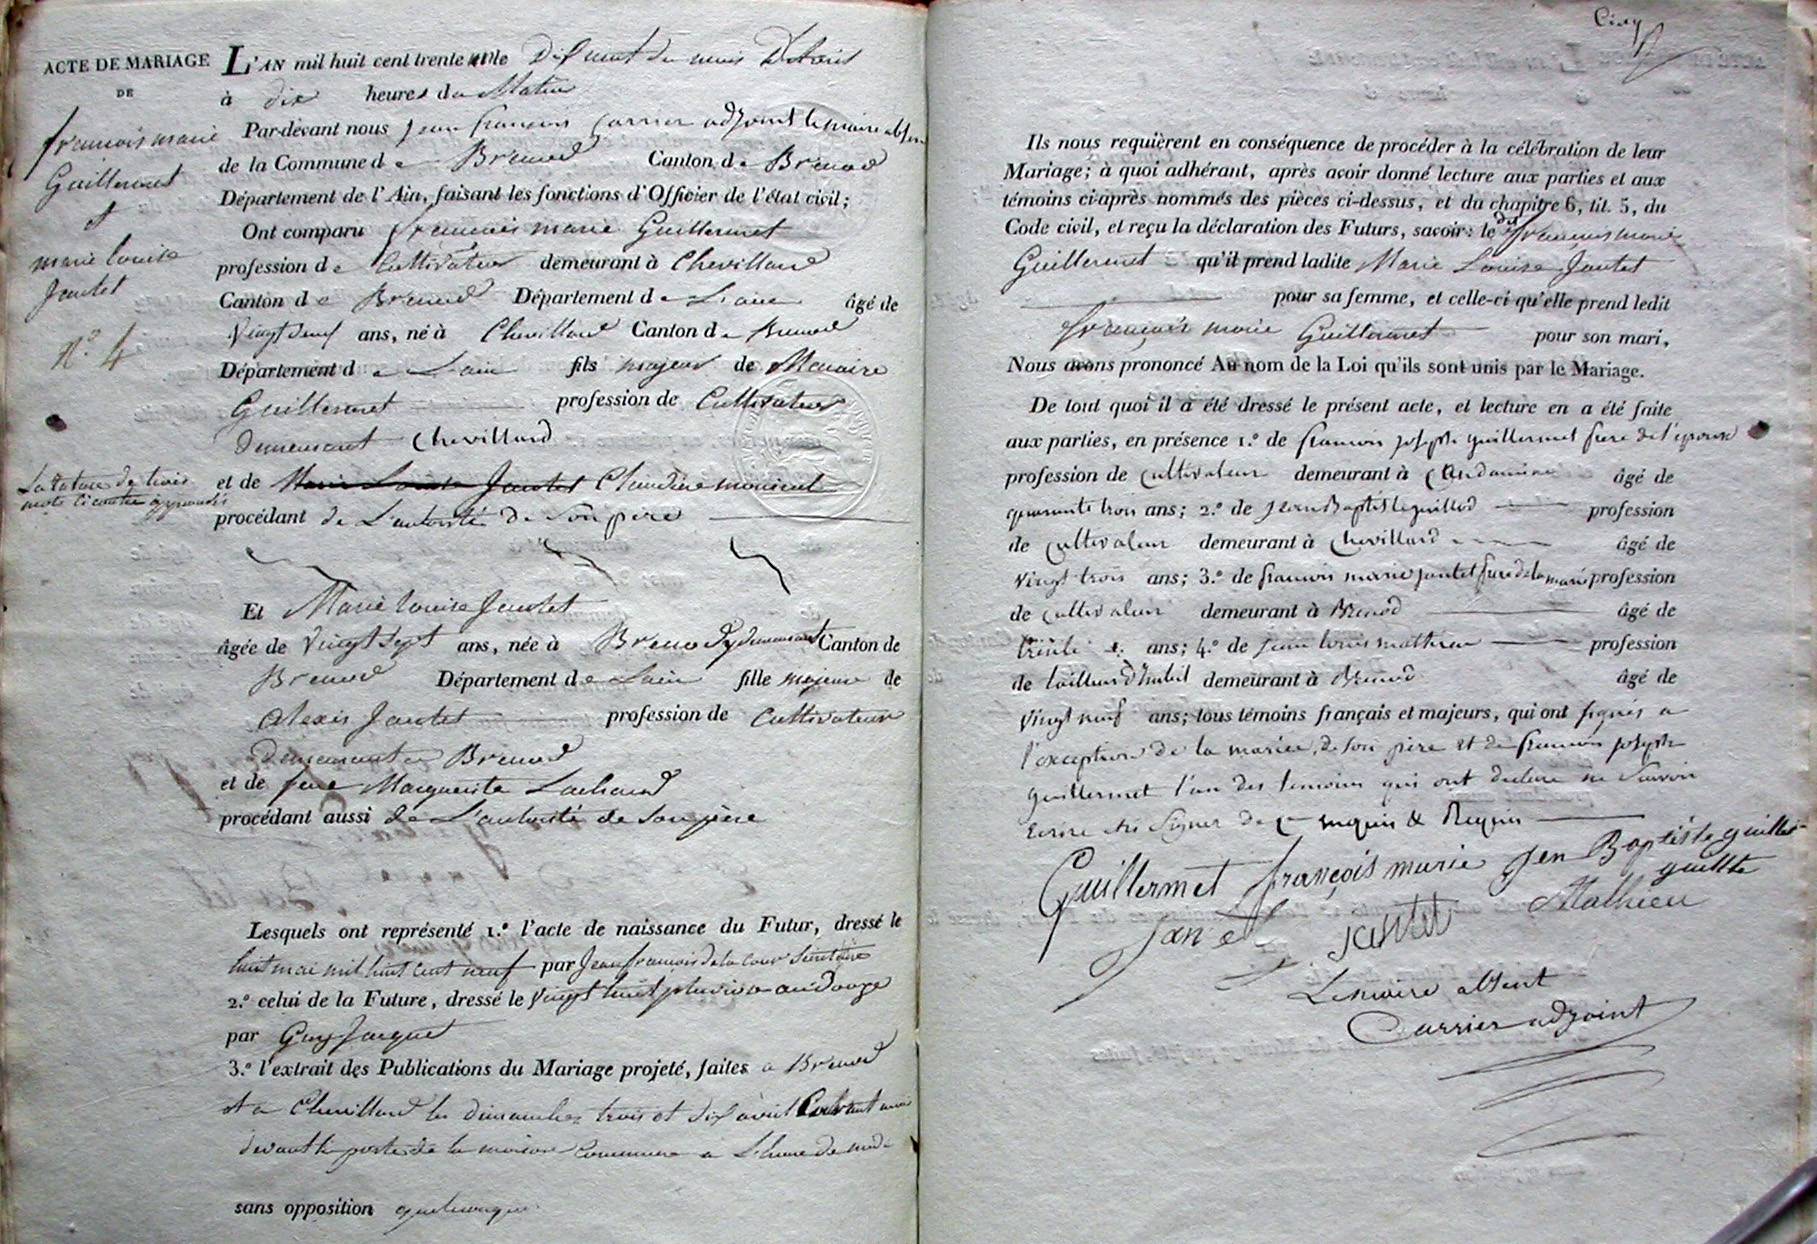 ACTE DE MARIAGE
DE
françois marie
Guillermet
et
marie louise
Jantet
N.º 4
La rature de trois
mots ci contre approuvée
L'AN mil huit cent trente un le Dix huit du mois D'avril
à dix heures du Matin
Par-devant nous Jean françois Carrier adjoint le maire absent
de la Commune de Brenod Canton de Brenod
Département de l'Ain, faisant les fonctions d'Officier de l'état civil;
Ont comparu françois marie Guillermet
profession de Cultivateur demeurant à Chevillard
Canton de Brenod Département de L'ain âgé de
Vingt deux ans, né à Chevillard Canton de Brenod
Département de L'ain fils majeur de
Guillermet profession de Cultivateur
Demeurant Chevillard
et de Marie Louise Jantet Claudine
procédant de L'autorité de Son père
Et Marie louise Jantet
âgée de Vingt Sept ans, née à Brenod y demeurant Canton de
Brenod Département de L'ain fille majeure de
Alexis Jantet profession de Cultivateur
Demeurant a Brenod
et de feue Marguerite
procédant aussi de L'autorité de Son père
Lesquels ont représenté 1.º l'acte de naissance du Futur, dressé le
huit mai mil huit cent neuf par Jean françois de la cour Secrétaire
2.º celui de la Future, dressé le Vingt huit pluviose an Douze
par Guy Jacquet
3.º l'extrait des Publications du Mariage projeté, faites a Brenod
et a Chevillard les dimanches trois et dix avril
devant la porte de la maison Commune a L'heure de midi
sans opposition quelconque
Cinq
Ils nous requièrent en conséquence de procéder à la célébration de leur
Mariage; à quoi adhérant, après avoir donné lecture aux parties et aux
témoins ci-après nommés des pièces ci-dessus, et du chapitre 6, tit. 5, du
Code civil, et reçu la déclaration des Futurs, savoir: le dit françois marie
Guillermet qu'il prend ladite Marie Louise Jantet
pour sa femme, et celle-ci qu'elle prend ledit
françois marie Guillermet pour son mari,
Nous avons prononcé Au nom de la Loi qu'ils sont unis par le Mariage.
De tout quoi il a été dressé le présent acte, et lecture en a été faite
aux parties, en présence 1.º de francois joseph guillermet frere de l'epoux
profession de cultivateur demeurant à âgé de
quarante trois ans; 2.º de Jean Baptiste profession
de cultivateur demeurant à Chevillard âgé de
vingt trois ans; 3.º de francois marie jantet frere de la mariée profession
de cultivateur demeurant à Brenod âgé de
trente ans; 4.º de jean louis mathieu profession
de tailleur d'habit demeurant à Brenod âgé de
vingt neuf ans; tous témoins français et majeurs, qui ont signés a
l'exception de la mariée, de son père et de francois joseph
guillermet l'un des temoins qui ont declaré ne Savoir
Ecrire ni Signer de ce enquis & Requis
Guillermet françois marie Jen Baptiste
Mathieu
Jantet
Le maire absent
Carrier adjoint